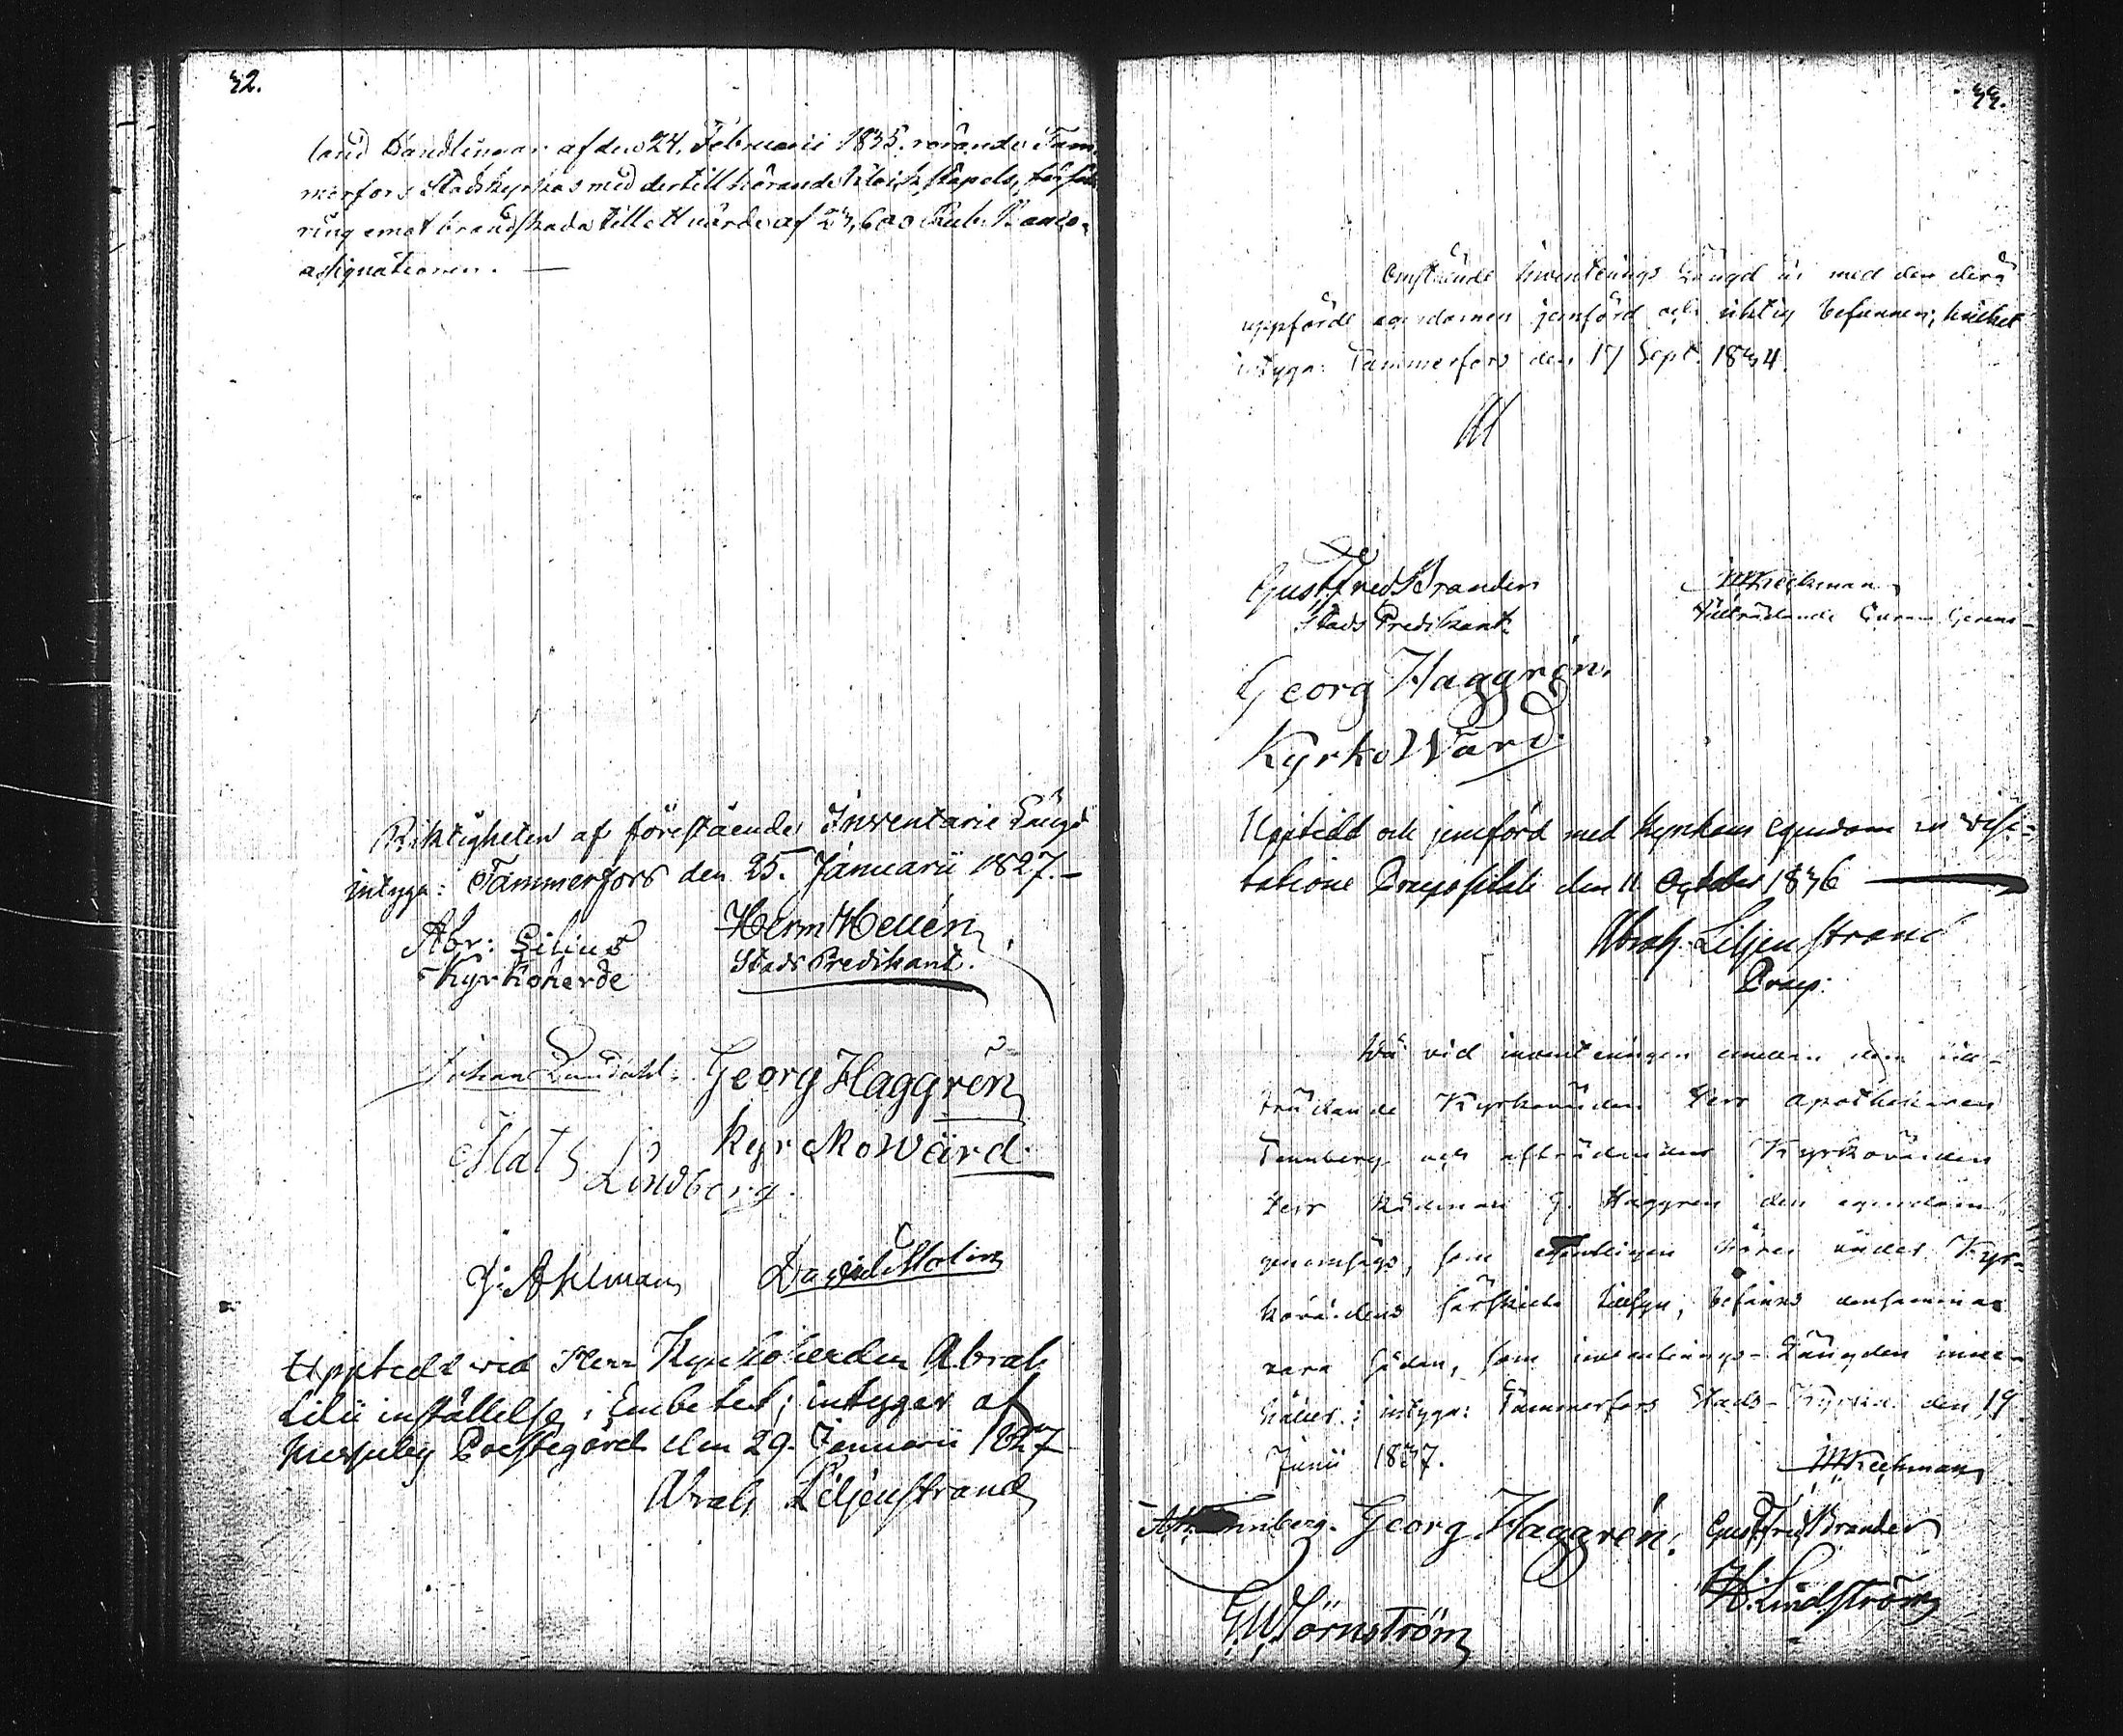 32.
land Handlingar af den 24. Februarii 1835. rörande Tam-
merfors Stadskyrkas med dertill hörande Klockstapels, försäk
ring emot brandskada till ett värde af 23,600 Rub. Banco-
assignationer. —
Riktigheten af förestående Inventarie Längd
intyga: Tammerfors den 25. Januarii 1827. –
Abr: Lilius
Kyrkoherde
Herm Hellén
Stads Predikant.
Johan Sundahl.
Georg Haggrén
Kyrkowärd.
Mats Lindberg.
J: Ahlman
David Molin
Upptedt vid Herr Kyrkoherden Abrah
Lilii inställelse i Embetet; intygar af
Messuby Prestegård den 29. Januarii 1827
Abrah Liljenstrand
33.
Omstående Inventerings Längd är med den derå
uppförde egendomen jemförd och riktig befunnen; hvilket
intyga: Tammerfors den 17 Sept. 1834.
Gust. Fred Brander
Stads Predikant
Tillträdande
Georg Haggrén.
KyrkoWärd.
Upptedt och jemförd med Kyrkans egendom in visi-
tatione Præpositali den 11 October 1836 —
Abrah. Liljenstrand
Præp:
Då vid inventeringen emellan den till-
trädande Kyrkovärden Herr Apothekaren
Tennberg och afträdande Kyrkovärden
Herr Rådman G. Haggrén den egendom
genomsågs, som egentligen hörer under Kyr-
kovärdens särskilta tillsyn, befanns densamma
vara sådan, som inventerings-Längden inne-
håller; intyga: Tammerfors Stads-Kyrka den 19
Junii 1837.
Tennberg.
Georg Haggrén.
Gust. Fred Brander
H. Lindström
G. W. Törnström